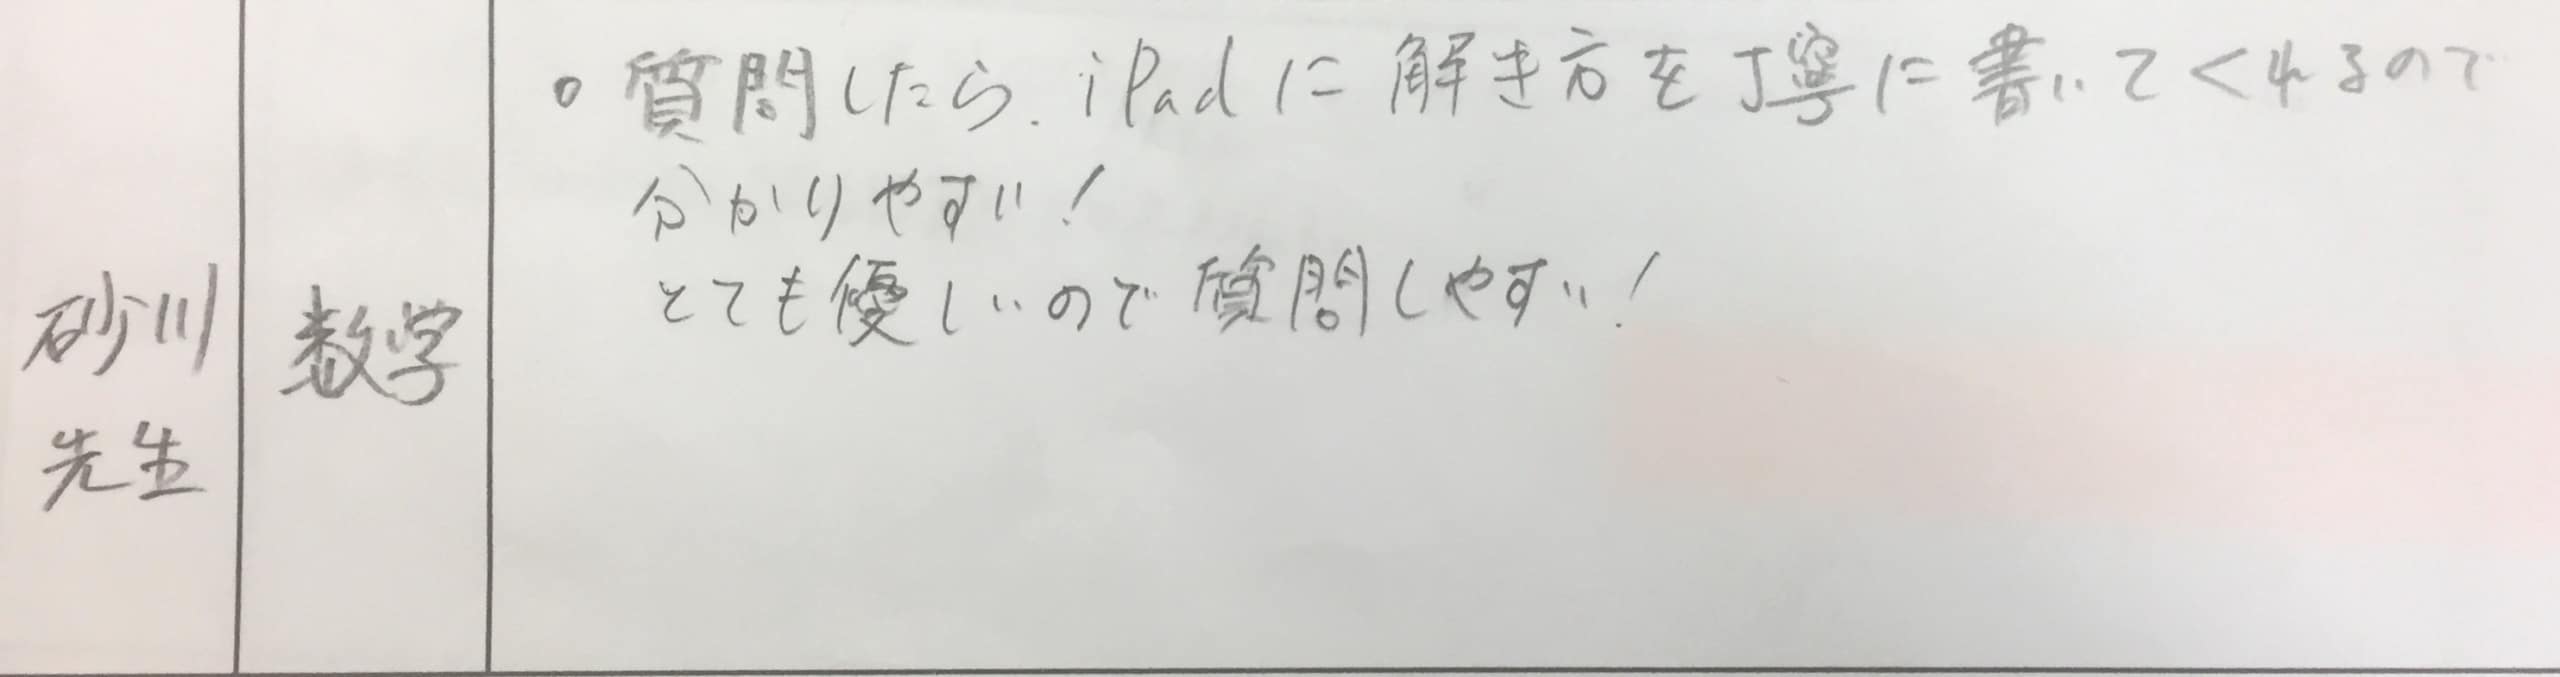 砂川
先生
数学
。質問したら.iPadに解き方を丁寧に書いてくれるので
分かりやすい!
とても優しいので質問しやすい!